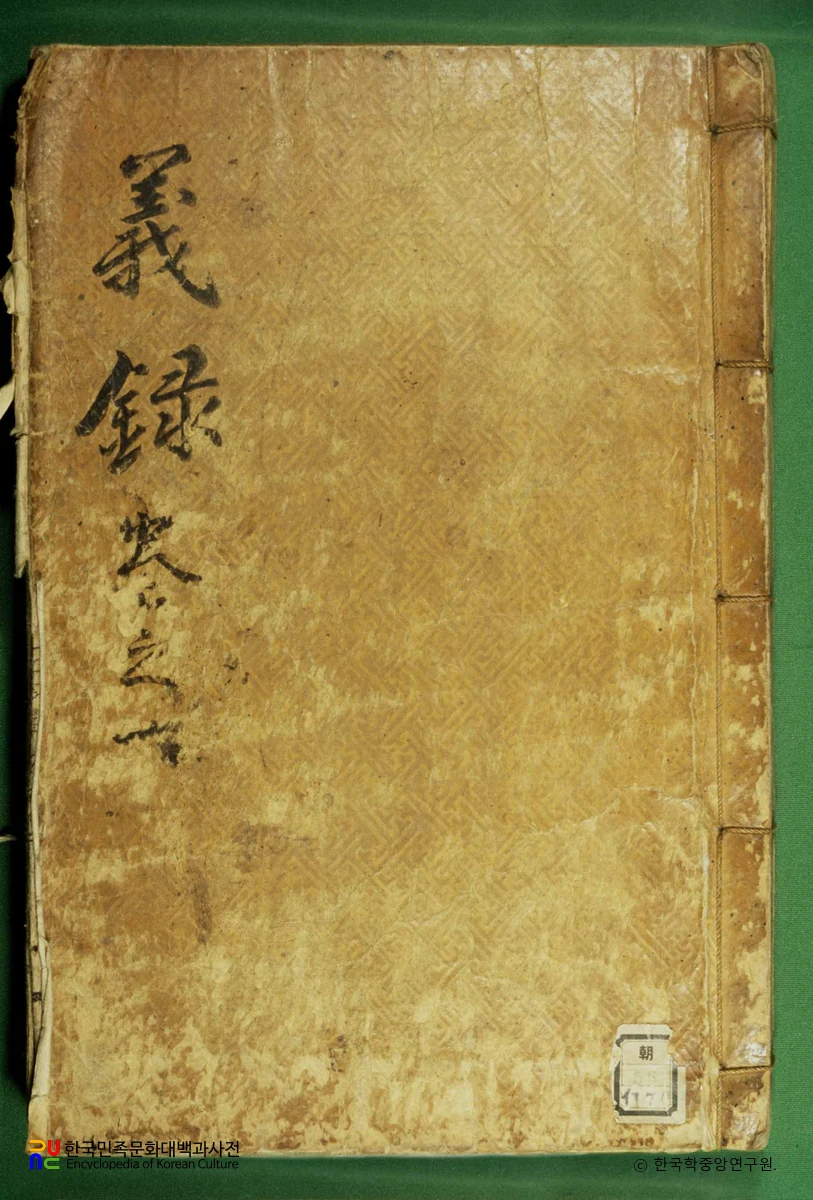 義錄
卷之
朝
한국민족문화대백과사전
Encyclopedia of Korean Culture
© 한국학중앙연구원.